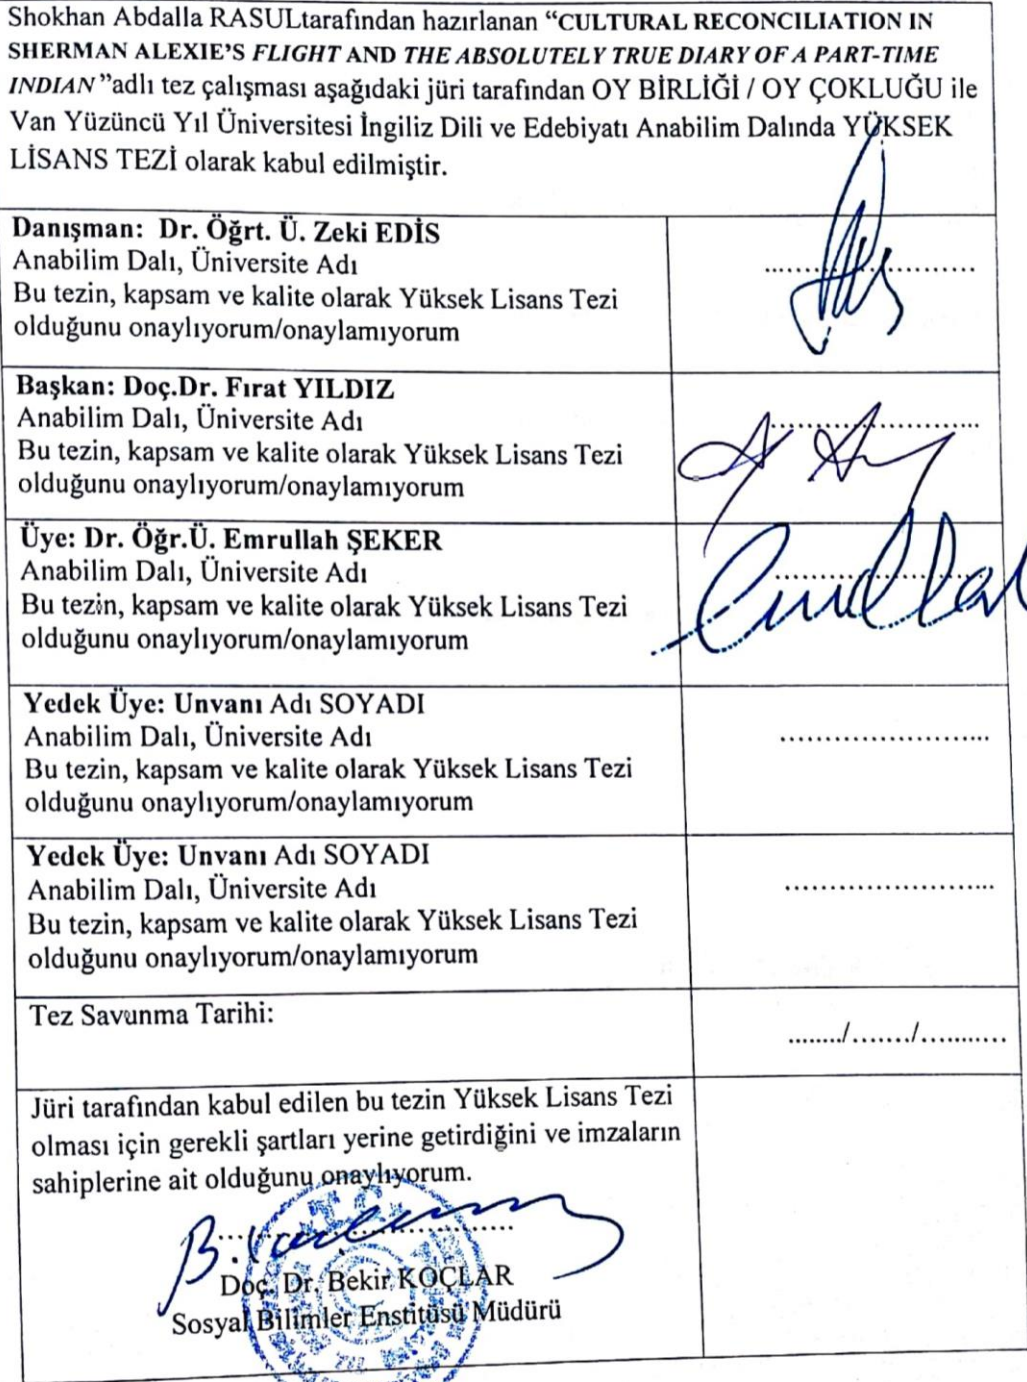 Shokhan Abdalla RASULtarafından hazırlanan “CULTURAL RECONCILIATION IN
SHERMAN ALEXIE’S FLIGHT AND THE ABSOLUTELY TRUE DIARY OF A PART-TIME
INDIAN”adlı tez çalışması aşağıdaki jüri tarafından OY BİRLİĞİ / OY ÇOKLUĞU ile
Van Yüzüncü Yıl Üniversitesi İngiliz Dili ve Edebiyatı Anabilim Dalında YÜKSEK
LİSANS TEZİ olarak kabul edilmiştir.
Danışman: Dr. Öğrt. Ü. Zeki EDİS
Anabilim Dalı, Üniversite Adı
Bu tezin, kapsam ve kalite olarak Yüksek Lisans Tezi
olduğunu onaylıyorum/onaylamıyorum
.............................
Başkan: Doç.Dr. Fırat YILDIZ
Anabilim Dalı, Üniversite Adı
Bu tezin, kapsam ve kalite olarak Yüksek Lisans Tezi
olduğunu onaylıyorum/onaylamıyorum
.............................
Üye: Dr. Öğr.Ü. Emrullah ŞEKER
Anabilim Dalı, Üniversite Adı
Bu tezin, kapsam ve kalite olarak Yüksek Lisans Tezi
olduğunu onaylıyorum/onaylamıyorum
.............................
Yedek Üye: Unvanı Adı SOYADI
Anabilim Dalı, Üniversite Adı
Bu tezin, kapsam ve kalite olarak Yüksek Lisans Tezi
olduğunu onaylıyorum/onaylamıyorum
.......................
Yedek Üye: Unvanı Adı SOYADI
Anabilim Dalı, Üniversite Adı
Bu tezin, kapsam ve kalite olarak Yüksek Lisans Tezi
olduğunu onaylıyorum/onaylamıyorum
.......................
Tez Savunma Tarihi:
......../......./...........
Jüri tarafından kabul edilen bu tezin Yüksek Lisans Tezi
olması için gerekli şartları yerine getirdiğini ve imzaların
sahiplerine ait olduğunu onaylıyorum.
Doç. Dr. Bekir KOÇLAR
Sosyal Bilimler Enstitüsü Müdürü